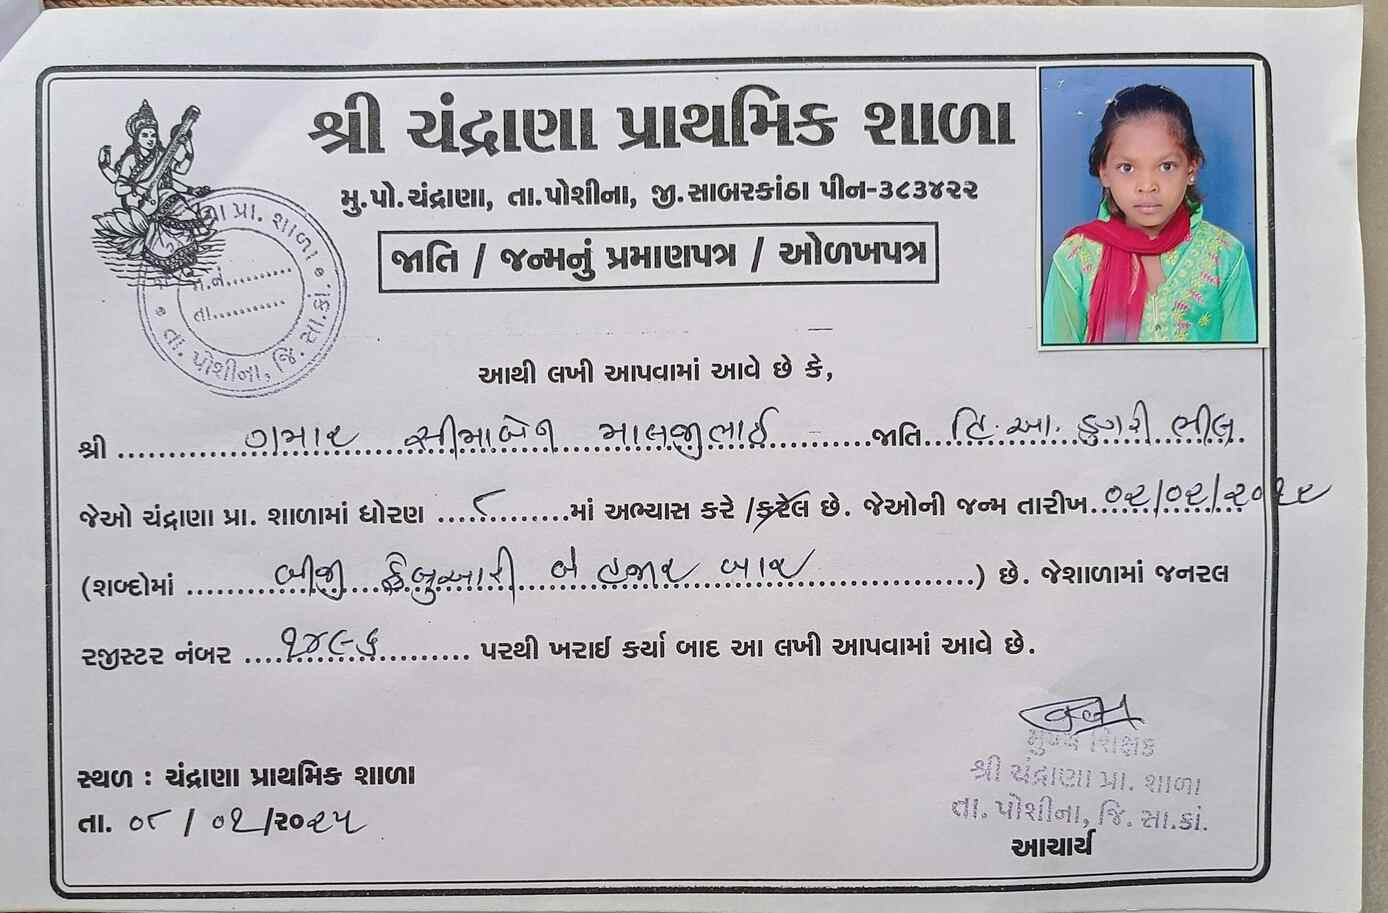 શ્રી ચંદ્રાણા પ્રાથમિક શાળા
મુ.પો.ચંદ્રાણા, તા.પોશીના, જી.સાબરકાંઠા પીન-૩૮૩૪૨૨
જાતિ / જન્મનું પ્રમાણપત્ર / ઓળખપત્ર
પ્રા. શાળા
તા. પોશીના, જિ. સા.કાં.
તા...........
આથી લખી આપવામાં આવે છે કે,
શ્રી .................. ગમાર સીમાબેન માલજીભાઈ ..........જાતિ.... હિ. આ. ડુંગરી ભીલ.
જેઓ ચંદ્રાણા પ્રા. શાળામાં ધોરણ .....૮.........માં અભ્યાસ કરે /કરેલ છે. જેઓની જન્મ તારીખ...૦૨/૦૨/૨૦૧૨
(શબ્દોમાં .......... બીજી ફેબ્રુઆરી બે હજાર બાર ....................) છે. જેશાળામાં જનરલ
રજીસ્ટર નંબર ....૧૪૯૬.......... પરથી ખરાઈ કર્યા બાદ આ લખી આપવામાં આવે છે.
મુખ્ય શિક્ષક
સ્થળ : ચંદ્રાણા પ્રાથમિક શાળા
શ્રી ચંદ્રાણા પ્રા. શાળા
તા. ૦૮ / ૦૧ /૨૦૨૫
તા. પોશીના, જિ. સા.કાં.
આચાર્ય